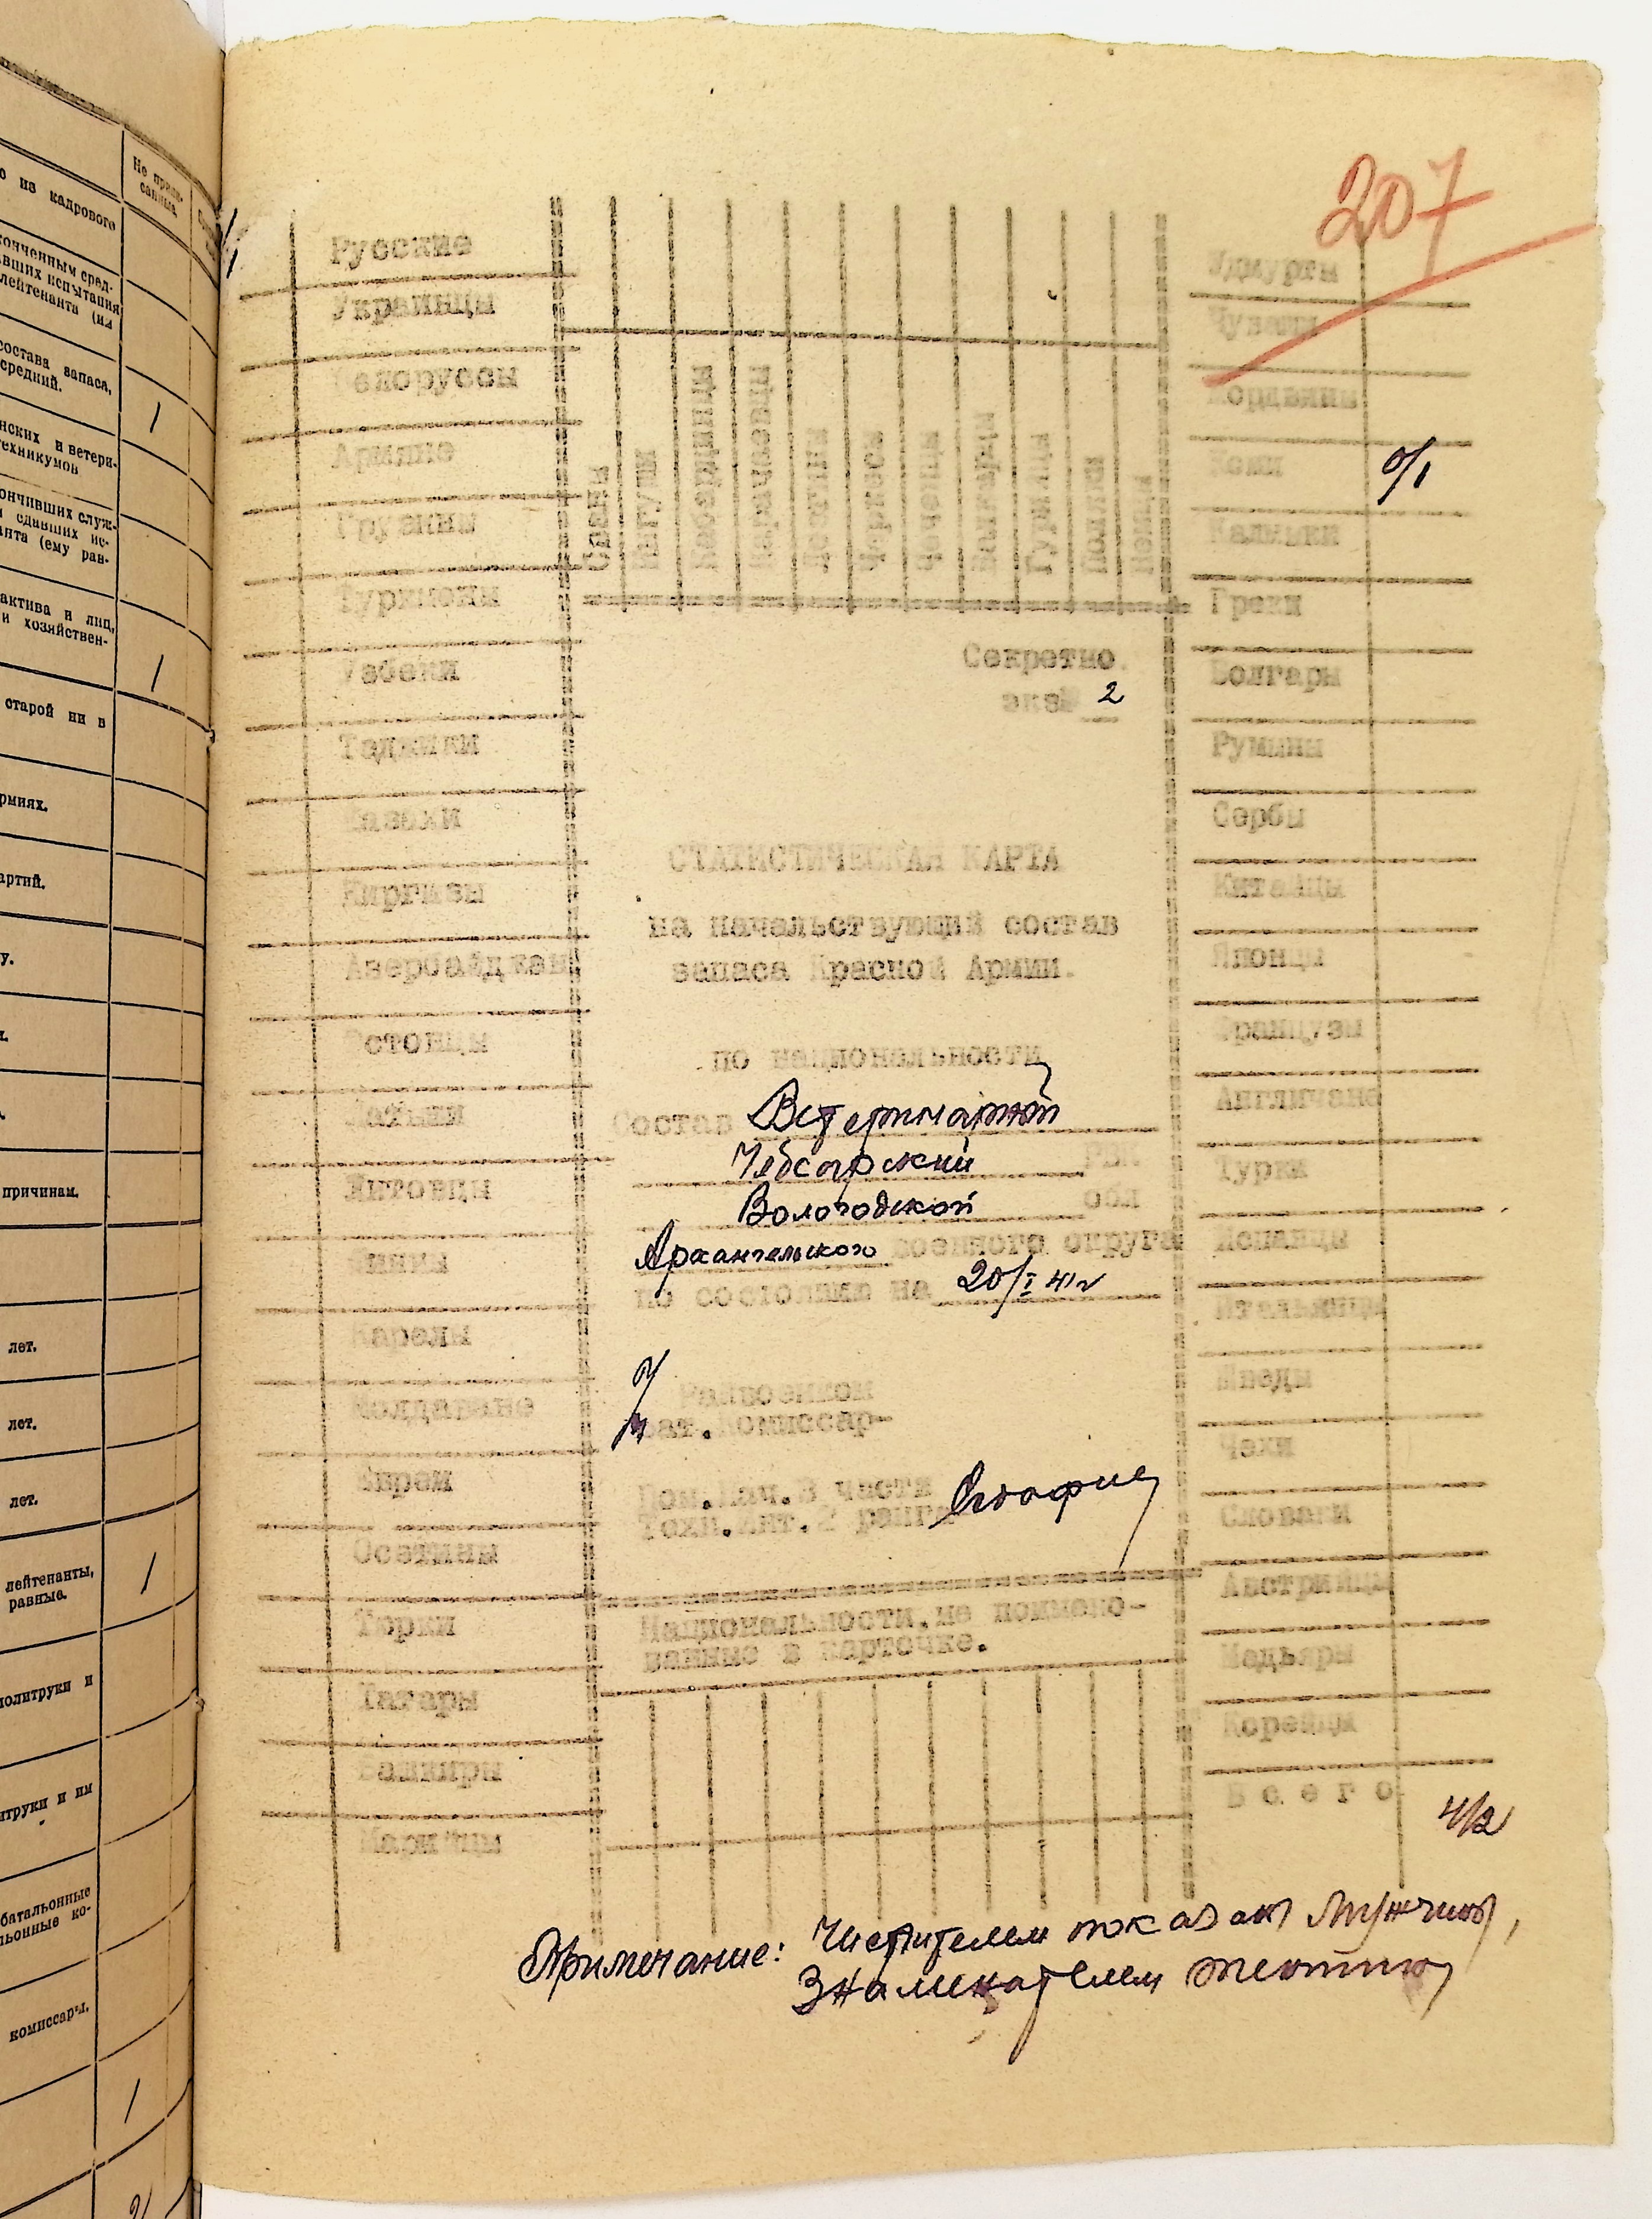 о из кадрового
Не припи-
санные
конченным сред-
лейтенанта (им
состава запаса,
средний.
1
нских и ветери-
техникумов
ончивших служ-
и сдавших ис-
нта (ему рав-
актива и лиц,
и хозяйствен-
1
старой ни в
рмиях.
артий.
у.
причинам.
лет.
лет.
лет.
лейтенанты,
равные.
1
политруки и
итруки и им
батальонные
льонные ко-
комиссары.
1
207
Русские
Украинцы
Белоруссы
Армяне
Грузины
Туркмены
Узбеки
Таджики
Казахи
Киргизы
Азербайджан.
Эстонцы
Латыши
Литовцы
Финны
Карелы
Молдаване
Евреи
Осетины
Тюрки
Татары
Башкиры
Марийцы
Ингуши
Кабардинцы
Чеченцы
Поляки
Немцы
Секретно.
экз№ 2
СТАТИСТИЧЕСКАЯ КАРТА
на начальствующий состав
запаса Красной Армии.
по национальности
Состав Ветеринарный
Чебсарский РВК
Вологодской обл
Архангельского военного округа
по состоянию на 20/I 41г
Райвоенком
Бат.Комиссар-
Пом.Нач.3 части
Техн.Инт.2 ранга
Национальности,не поимено-
ванные в карточке.
Удмурты
Чуваши
Мордвины
Коми 0/1
Калмыки
Греки
Болгары
Румыны
Сербы
Китайцы
Японцы
Французы
Англичане
Турки
Испанцы
Итальянцы
Шведы
Чехи
Словаки
Австрийцы
Мадьяры
Корейцы
Всего 4/2
Примечание: Числителем показаны мужчины,
Знаменателем женщины